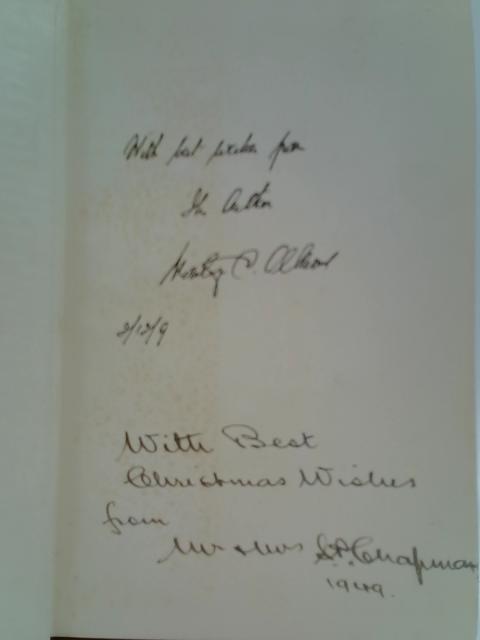 With best wishes from
The Author
C.
2/12/9
With Best
Christmas Wishes
from
Mr & Mrs S.P. Chapman
1949.